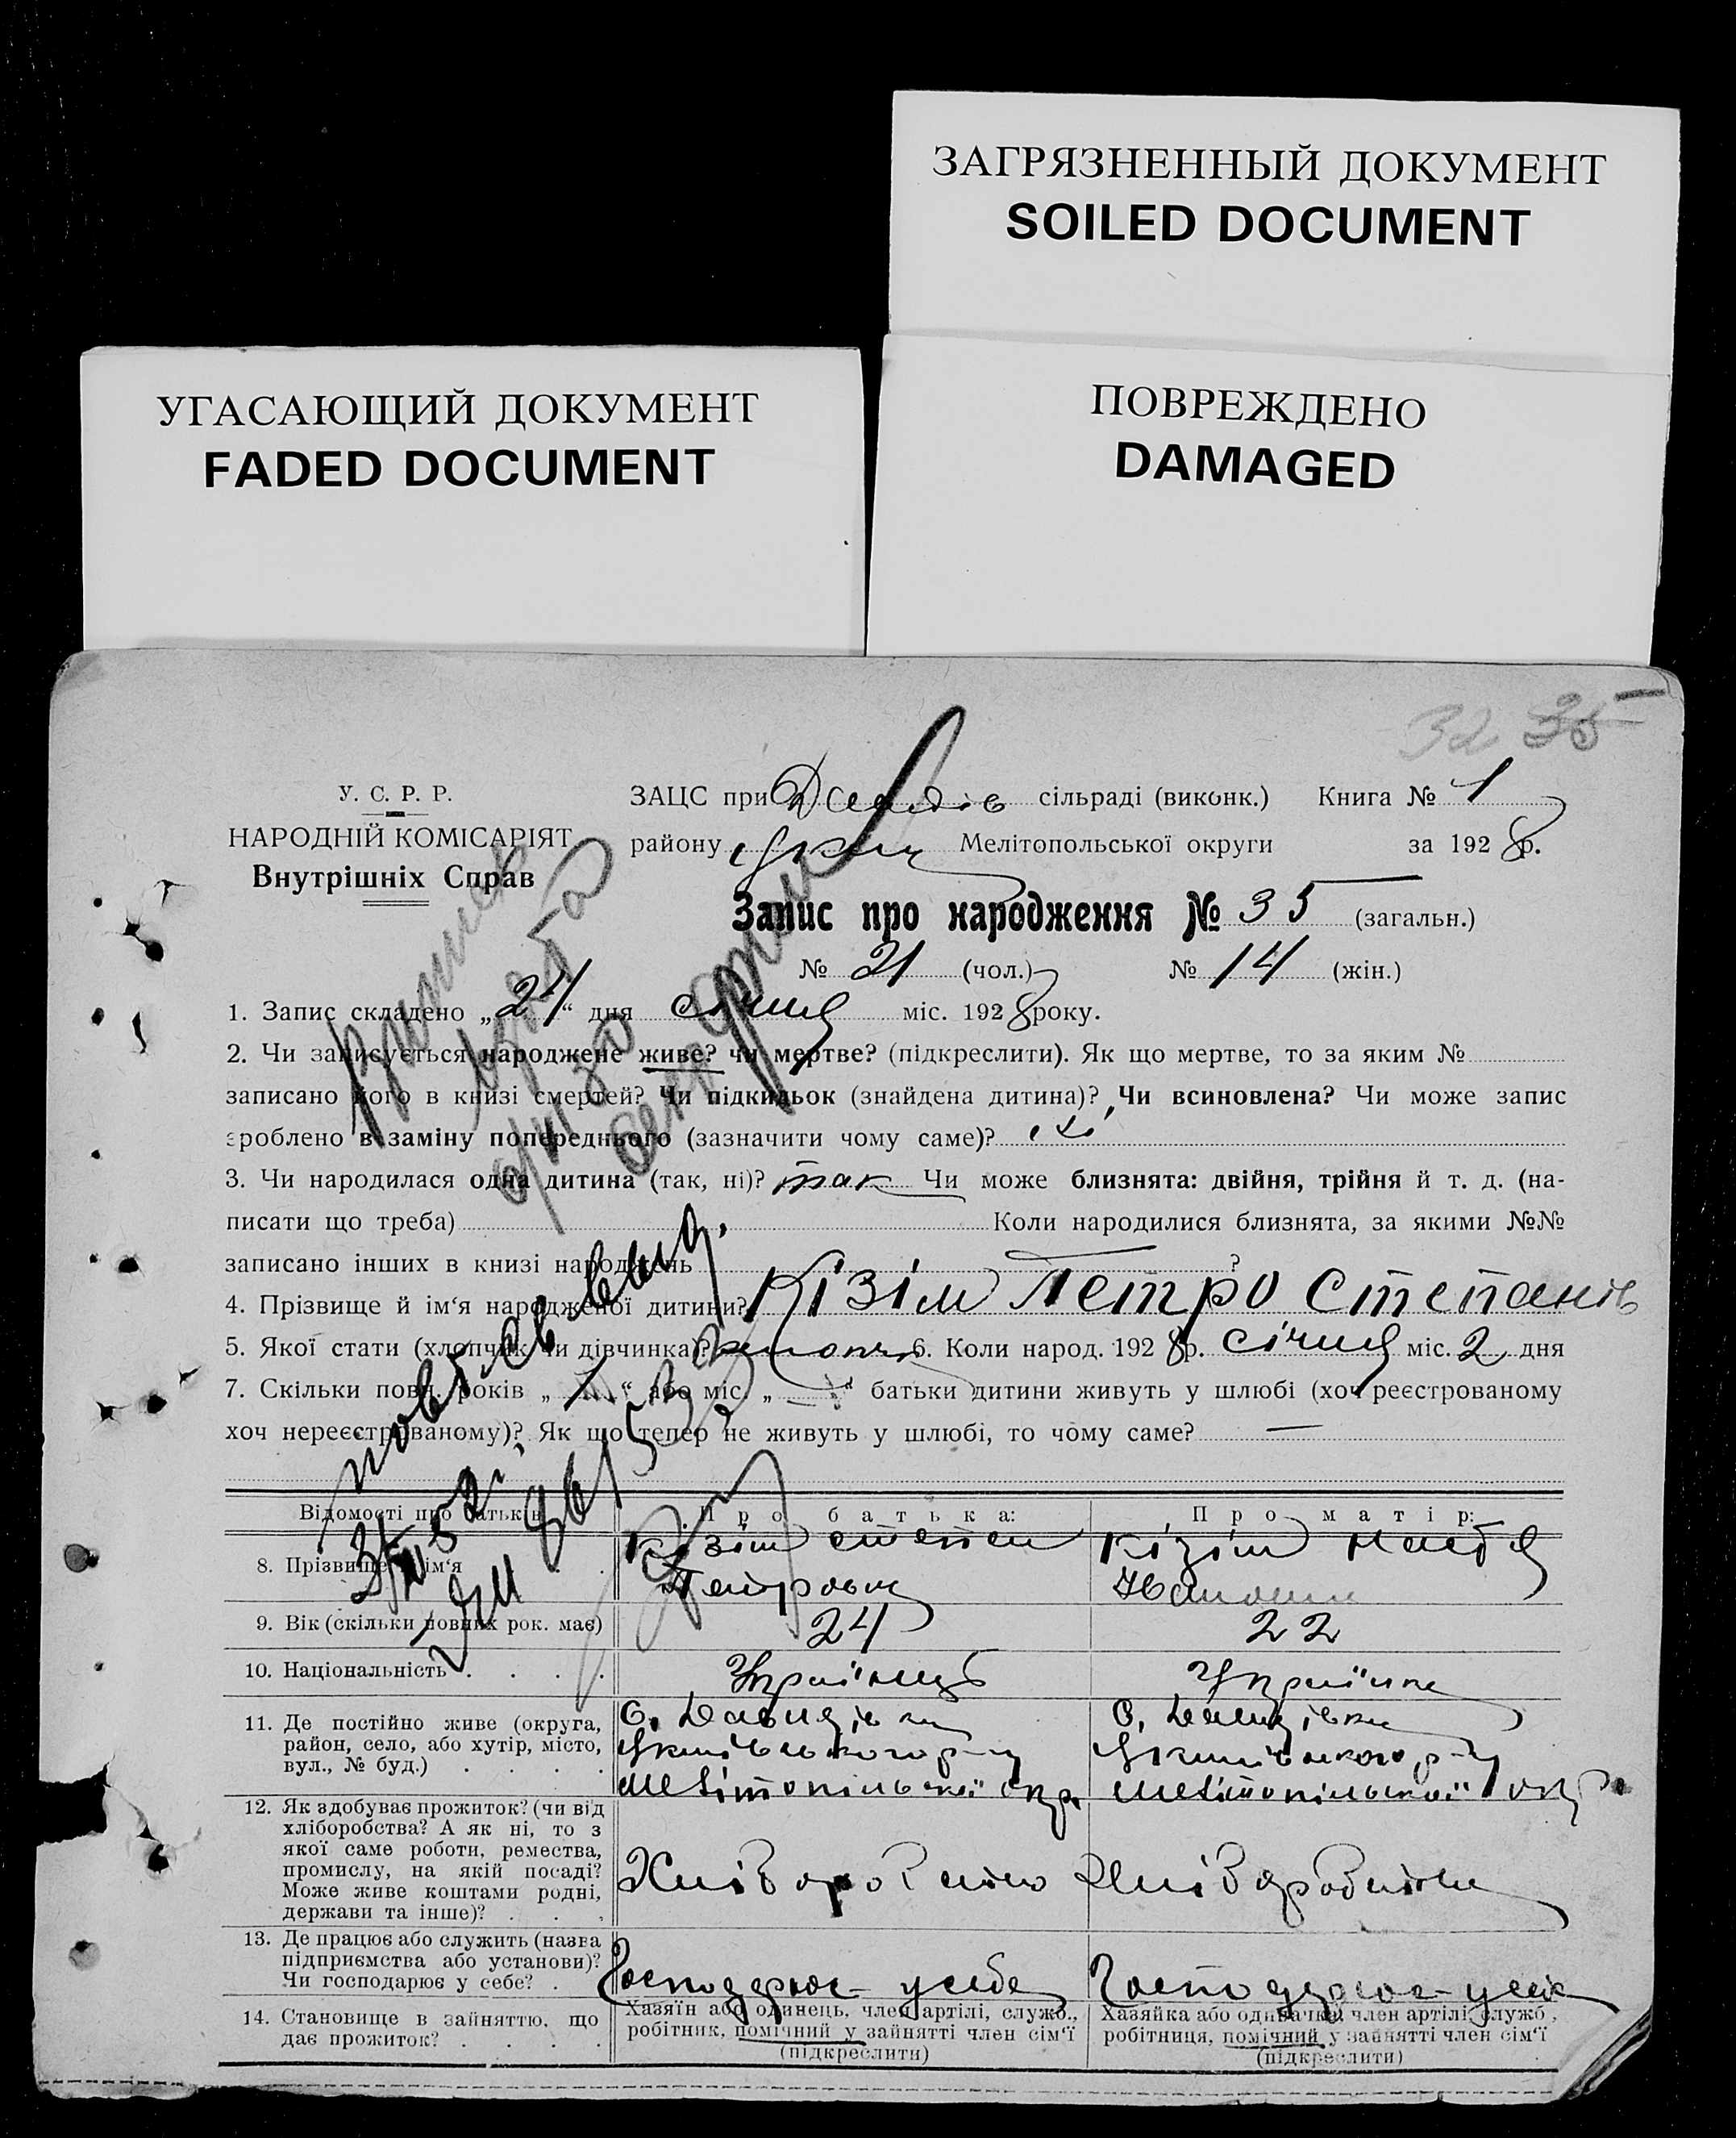 ЗАГРЯЗНЕННЫЙ ДОКУМЕНТ
SOILED DOCUMENT
УГАСАЮЩИЙ ДОКУМЕНТ
FADED DOCUMENT
ПОВРЕЖДЕНО
DAMAGED
32 35
У. С. Р. Р.
НАРОДНІЙ КОМІСАРІЯТ
Внутрішніх Справ
ЗАЦС при сільраді (виконк.) Книга № 1
району Мелітопольської округи за 1928 р.
Запис про народження № 35 (загальн.)
№ 21 (чол.) № 14 (жін.)
1. Запис складено „24“ дня січня міс. 1928 року.
2. Чи записується народжене живе? чи мертве? (підкреслити). Як що мертве, то за яким №
записано його в книзі смертей? Чи підкидьок (знайдена дитина)? Чи всиновлена? Чи може запис
зроблено в заміну попереднього (зазначити чому саме)?
3. Чи народилася одна дитина (так, ні)? так Чи може близнята: двійня, трійня й т. д. (на-
писати що треба) Коли народилися близнята, за якими №№
записано інших в книзі народжень ?
4. Прізвище й ім‘я народженої дитини? Кізім Петро Степанів
5. Якої стати (хлопчик чи дівчинка)? хлопчик 6. Коли народ. 1928 р. січня міс. 2 дня
7. Скільки повн. років „ 1 “ або міс. „ “ батьки дитини живуть у шлюбі (хоч реєстрованому
хоч нереєстрованому)? Як що тепер не живуть у шлюбі, то чому саме? —
Відомості про батьків Про батька: Про матір:
8. Прізвище ім‘я Кізім Степан Кізім Настя
Петрович
9. Вік (скільки повних рок. має) 24 22
10. Національність Українець Українка
11. Де постійно живе (округа, район, село, або хутір, місто, вул., № буд.)
С. Давидівка С. Давидівка
Якимівського р-ну Якимівського р-ну
Мелітопільської окр. Мелітопільської окр.
12. Як здобуває прожиток? (чи від
хліборобства? А як ні, то з
якої саме роботи, ремества,
промислу, на якій посаді?
Може живе коштами родні,
держави та інше)?
Хліборобство Хліборобство
13. Де працює або служить (назва
підприємства або установи)?
Чи господарює у себе?
Господарює у себе Господарює у себе
14. Становище в зайняттю, що
дає прожиток?
Хазяїн або одинець, член артілі, служб.,
робітник, помічний у зайнятті член сім‘ї
(підкреслити)
Хазяйка або одиначка, член артілі, служб.,
робітниця, помічний у зайнятті член сім‘ї
(підкреслити)